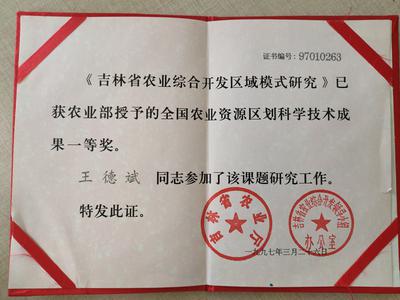 证书编号:97010263
《吉林省农业综合开发区域模式研究》已
获农业部授予的全国农业资源区划科学技术成
果一等奖。
王德斌 同志参加了该课题研究工作。
特发此证。
吉林省农业厅
吉林省农业综合开发领导小组
办公室
一九九七年三月二十六日